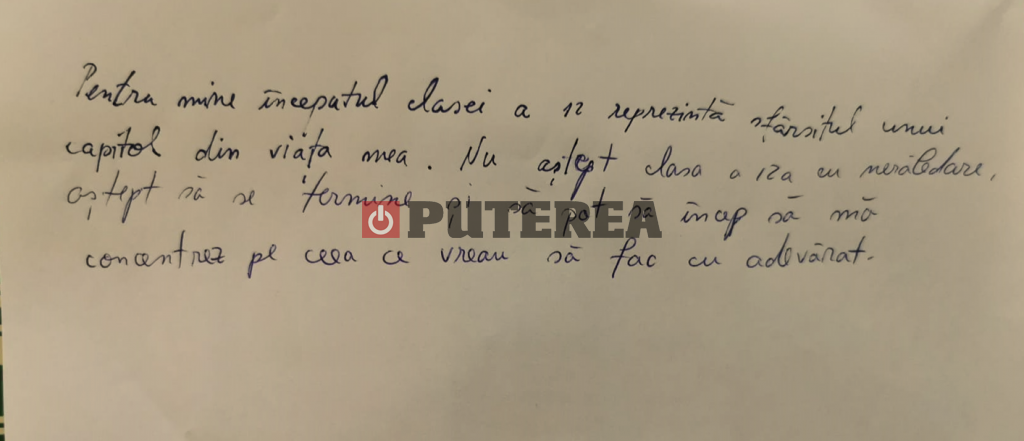 Pentru mine începutul clasei a 12 reprezintă sfârsitul unui
capitol din viața mea. Nu aștept clasa a 12a cu nerăbdare,
aștept să se termine și să pot să încep să mă
PUTEREA
concentrez pe ceea ce vreau să fac cu adevărat.